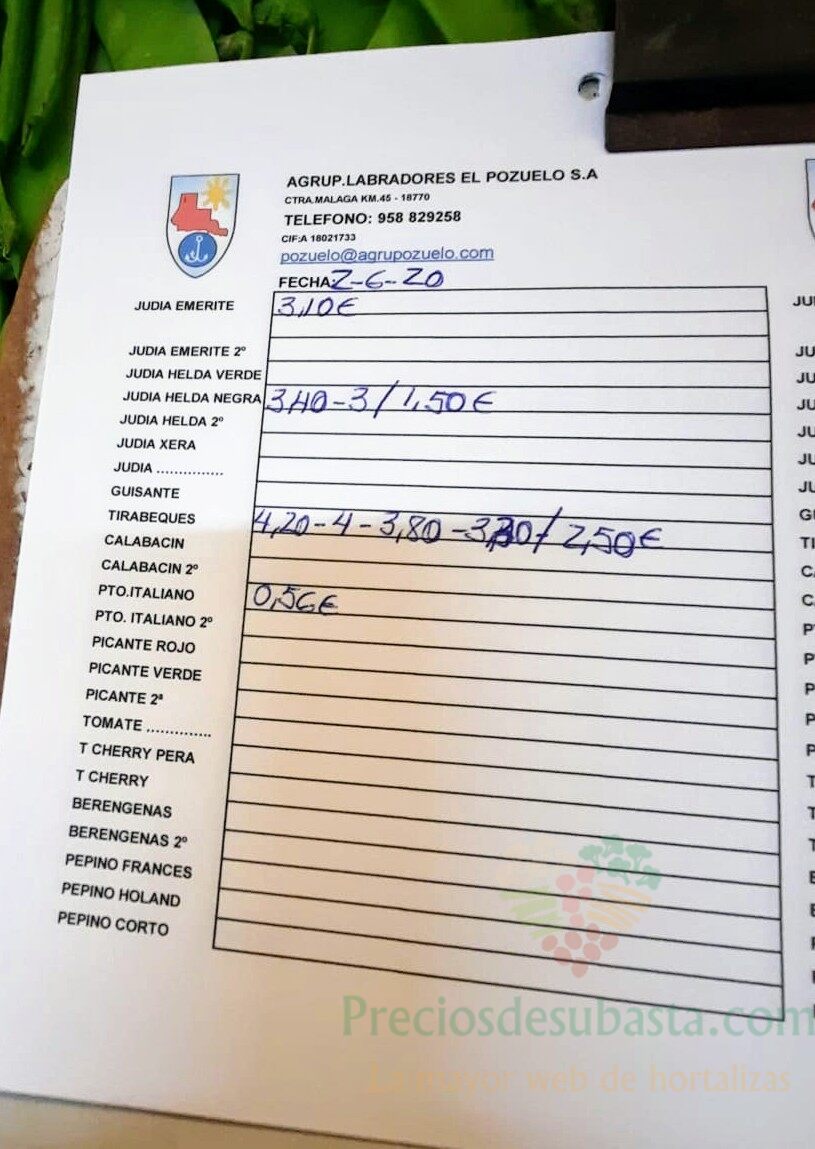 AGRUP.LABRADORES EL POZUELO S.A
CTRA.MALAGA KM.45 - 18770
TELEFONO: 958 829258
CIF:A 18021733
pozuelo@agrupozuelo.com
FECHA: 2-6-20
JUDIA EMERITE 3,10€
JUDIA EMERITE 2º
JUDIA HELDA VERDE
JUDIA HELDA NEGRA 3,40-3/1,50€
JUDIA HELDA 2º
JUDIA XERA
JUDIA ...............
GUISANTE
TIRABEQUES 4,20-4-3,80- / 2,50€
CALABACIN
CALABACIN 2º
PTO.ITALIANO 0,56€
PTO. ITALIANO 2º
PICANTE ROJO
PICANTE VERDE
PICANTE 2ª
TOMATE ..............
T CHERRY PERA
T CHERRY
BERENGENAS
BERENGENAS 2º
PEPINO FRANCES
PEPINO HOLAND
PEPINO CORTO
Preciosdesubasta.com
La mayor web de hortalizas